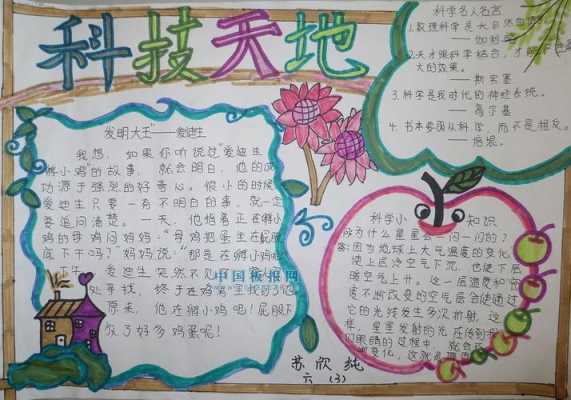 科技天地
科学名人名言
1.数理科学是大自然的
——伽利略
2.天才跟科学结合,才能
大的效果。
——斯宾塞
3.科学是我时代的神经系统。
——高尔基
4.书本要跟从科学,而不是相反。
——培根。
发明大王"——爱迪生
我想,如果你听说过"爱迪生
孵小鸡"的故事,就会明白,他的成
功源于强烈的好奇心。很小的时候
爱迪生只要一有不明白的事,就一定
要追问清楚。一天,他指着正在孵小
鸡的母鸡问妈妈:"母鸡把蛋坐在屁股
底下干吗?"妈妈说:"那是在孵小鸡呢
爱迪生突然不见了
处寻找,终于在鸡窝里找到了他
原来,他在孵小鸡吧!屁股下
放了好多鸡蛋呢!
中国板报网
科学小知识
为什么星星会一闪一闪的?
答:因为地球上大气温度的变化,
使上层冷空气下沉,也使下层
暖空气上升。这一层温度和密
度不断改变的空气层会使通过
它的光线发生多次折射,这
样,星星发射的光在传到
们眼睛的过程中,就会
变化,这就是
苏欣纯
六(3)